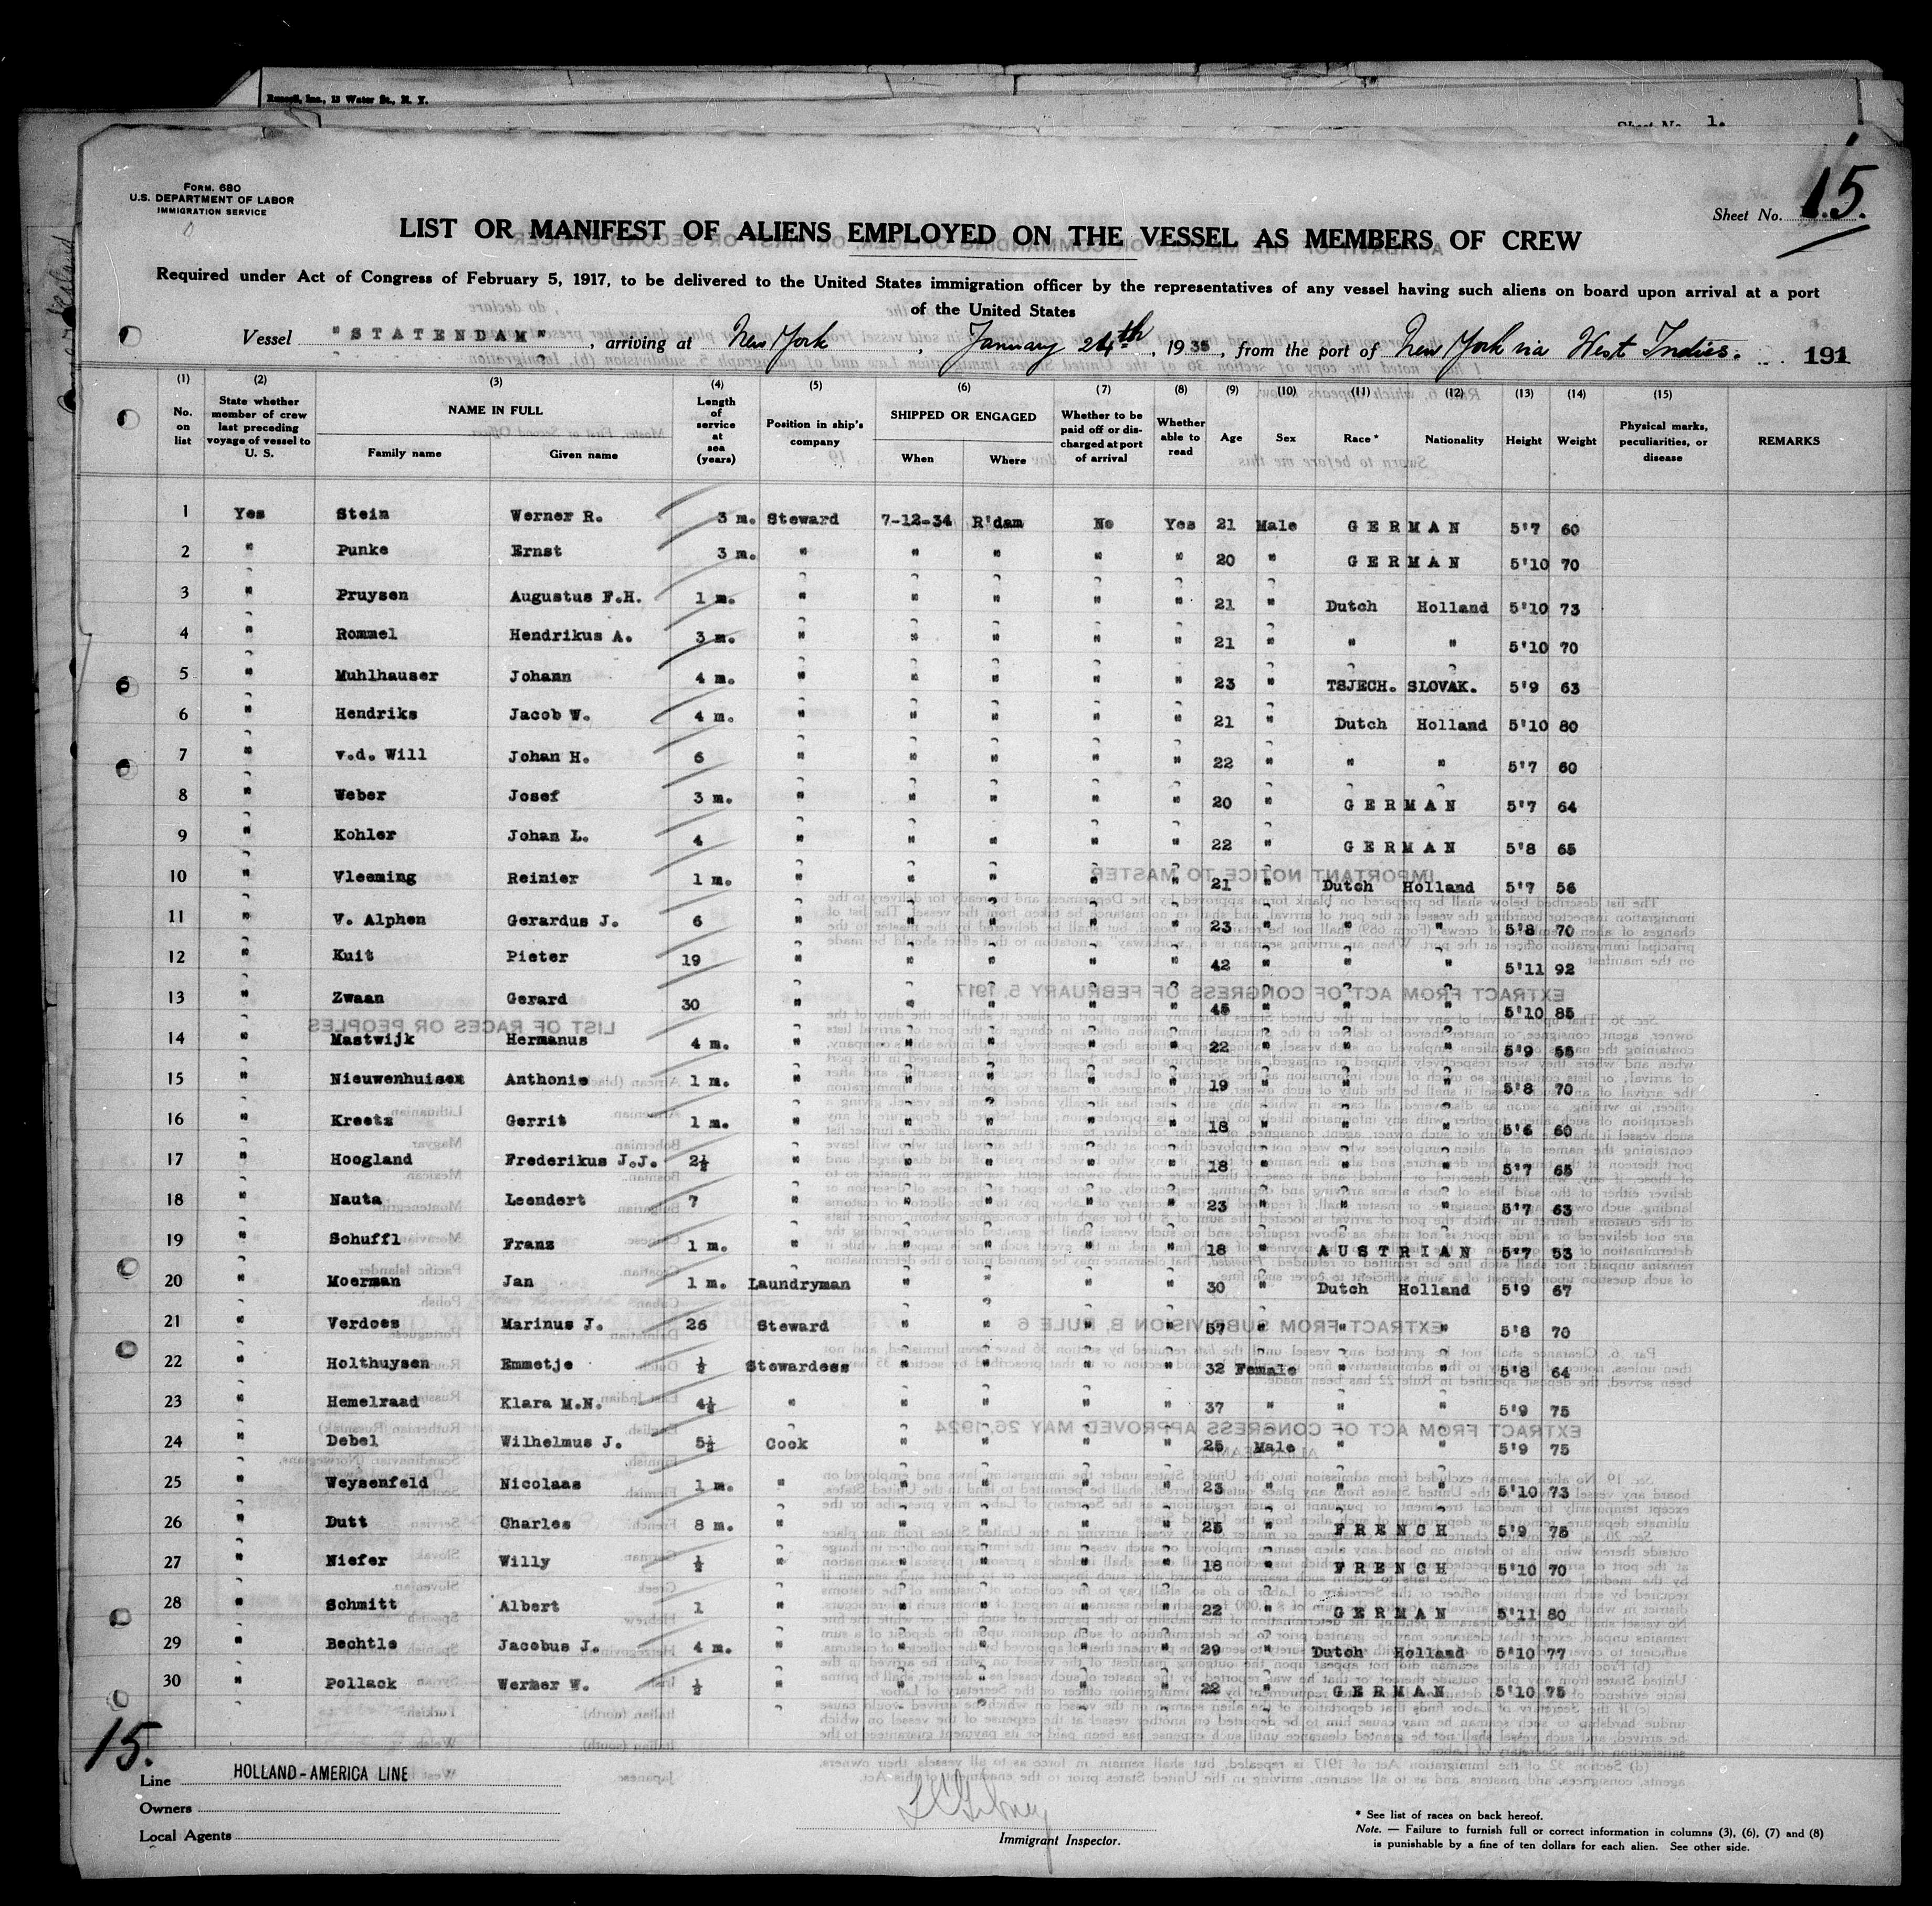 Russell, Inc., 15 Water St., N. Y.
Sheet No. 1.
Form. 680
U.S. DEPARTMENT OF LABOR
IMMIGRATION SERVICE
Sheet No. 15.
LIST OR MANIFEST OF ALIENS EMPLOYED ON THE VESSEL AS MEMBERS OF CREW
Required under Act of Congress of February 5, 1917, to be delivered to the United States immigration officer by the representatives of any vessel having such aliens on board upon arrival at a port
of the United States
Vessel "STATENDAM", arriving at New York, January 24th, 1935, from the port of New York via West Indies. 191
(1) (2) (3) (4) (5) (6) (7) (8) (9) (10) (11) (12) (13) (14) (15)
No. on list State whether member of crew last preceding voyage of vessel to U. S. NAME IN FULL Family name Given name Length of service at sea (years) Position in ship's company SHIPPED OR ENGAGED When Where Whether to be paid off or discharged at port of arrival Whether able to read Age Sex Race* Nationality Height Weight Physical marks, peculiarities, or disease REMARKS
1 Yes Stein Werner R. 3 m. Steward 7-12-34 R'dam No Yes 21 Male GERMAN 5'7 60
2 " Punke Ernst 3 m. " " " " " 20 " GERMAN 5'10 70
3 " Pruysen Augustus F.H. 1 m. " " " " " 21 " Dutch Holland 5'10 73
4 " Rommel Hendrikus A. 3 m. " " " " " 21 " " " 5'10 70
5 " Muhlhauser Johann 4 m. " " " " " 23 " TSJECH. SLOVAK. 5'9 63
6 " Hendriks Jacob W. 4 m. " " " " " 21 " Dutch Holland 5'10 80
7 " v.d. Will Johan H. 6 " " " " " 22 " " " 5'7 60
8 " Weber Josef 3 m. " " " " " 20 " GERMAN 5'7 64
9 " Kohler Johan L. 4 " " " " " 22 " GERMAN 5'8 65
10 " Vleeming Reinier 1 m. " " " " " 21 " Dutch Holland 5'7 56
11 " V. Alphen Gerardus J. 6 " " " " " 23 " " " 5'8 70
12 " Kuit Pieter 19 " " " " " 42 " " " 5'11 92
13 " Zwaan Gerard 30 " " " " " 45 " " " 5'10 85
14 " Mastwijk Hermanus 4 m. " " " " " 22 " " " 5'9 55
15 " Nieuwenhuizen Anthonie 1 m. " " " " " 19 " " " 5'8 70
16 " Kreetz Gerrit 1 m. " " " " " 18 " " " 5'6 60
17 " Hoogland Frederikus J.J. 2½ " " " " " 18 " " " 5'7 65
18 " Nauta Leendert 7 " " " " " 23 " " " 5'7 63
19 " Schuffl Franz 1 m. " " " " " 18 " AUSTRIAN 5'7 53
20 " Moerman Jan 1 m. Laundryman " " " " 30 " Dutch Holland 5'9 67
21 " Verdoes Marinus J. 26 Steward " " " " 57 " " " 5'8 70
22 " Holthuysen Emmetje ½ Stewardess " " " " 32 Female " " 5'8 64
23 " Hemelraad Klara M.N. 4½ " " " " " 37 " " " 5'9 75
24 " Debel Wilhelmus J. 5½ Cook " " " " 25 Male " " 5'9 75
25 " Weysenfeld Nicolaas 1 m. " " " " " 23 " " " 5'10 73
26 " Dutt Charles 8 m. " " " " " 25 " FRENCH 5'9 75
27 " Niefer Willy ½ " " " " " 18 " FRENCH 5'10 70
28 " Schmitt Albert 1 " " " " " 22 " GERMAN 5'11 80
29 " Bechtle Jacobus J. 4 m. " " " " " 29 " Dutch Holland 5'10 77
30 " Pollack Werner W. ½ " " " " " 22 " GERMAN 5'10 75
15.
Line HOLLAND-AMERICA LINE
Owners
Local Agents
Immigrant Inspector.
* See list of races on back hereof.
Note. — Failure to furnish full or correct information in columns (3), (6), (7) and (8)
is punishable by a fine of ten dollars for each alien. See other side.